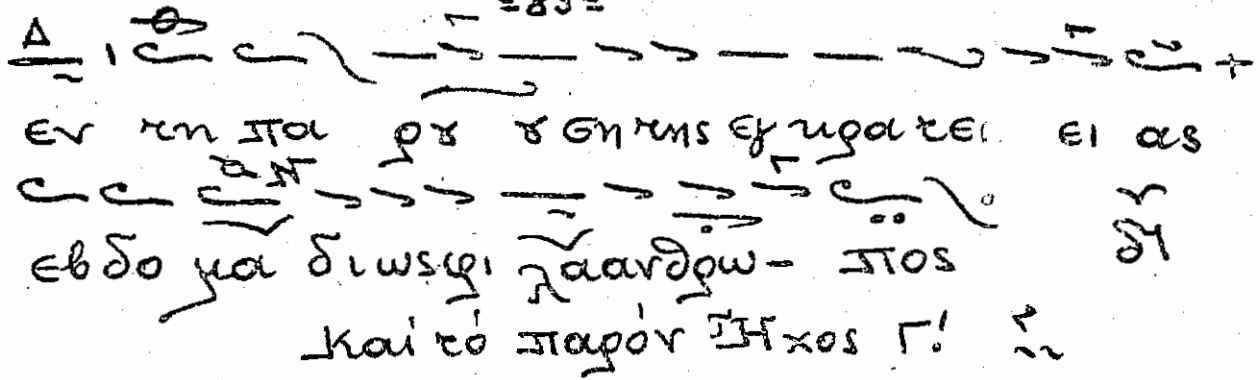 εν τη πα ρου ου ση της εγ κρα τει ει ας
εβ δο μα δι ως φι λα αν θρω- πος
Και τό παρόν Ήχος Γ!